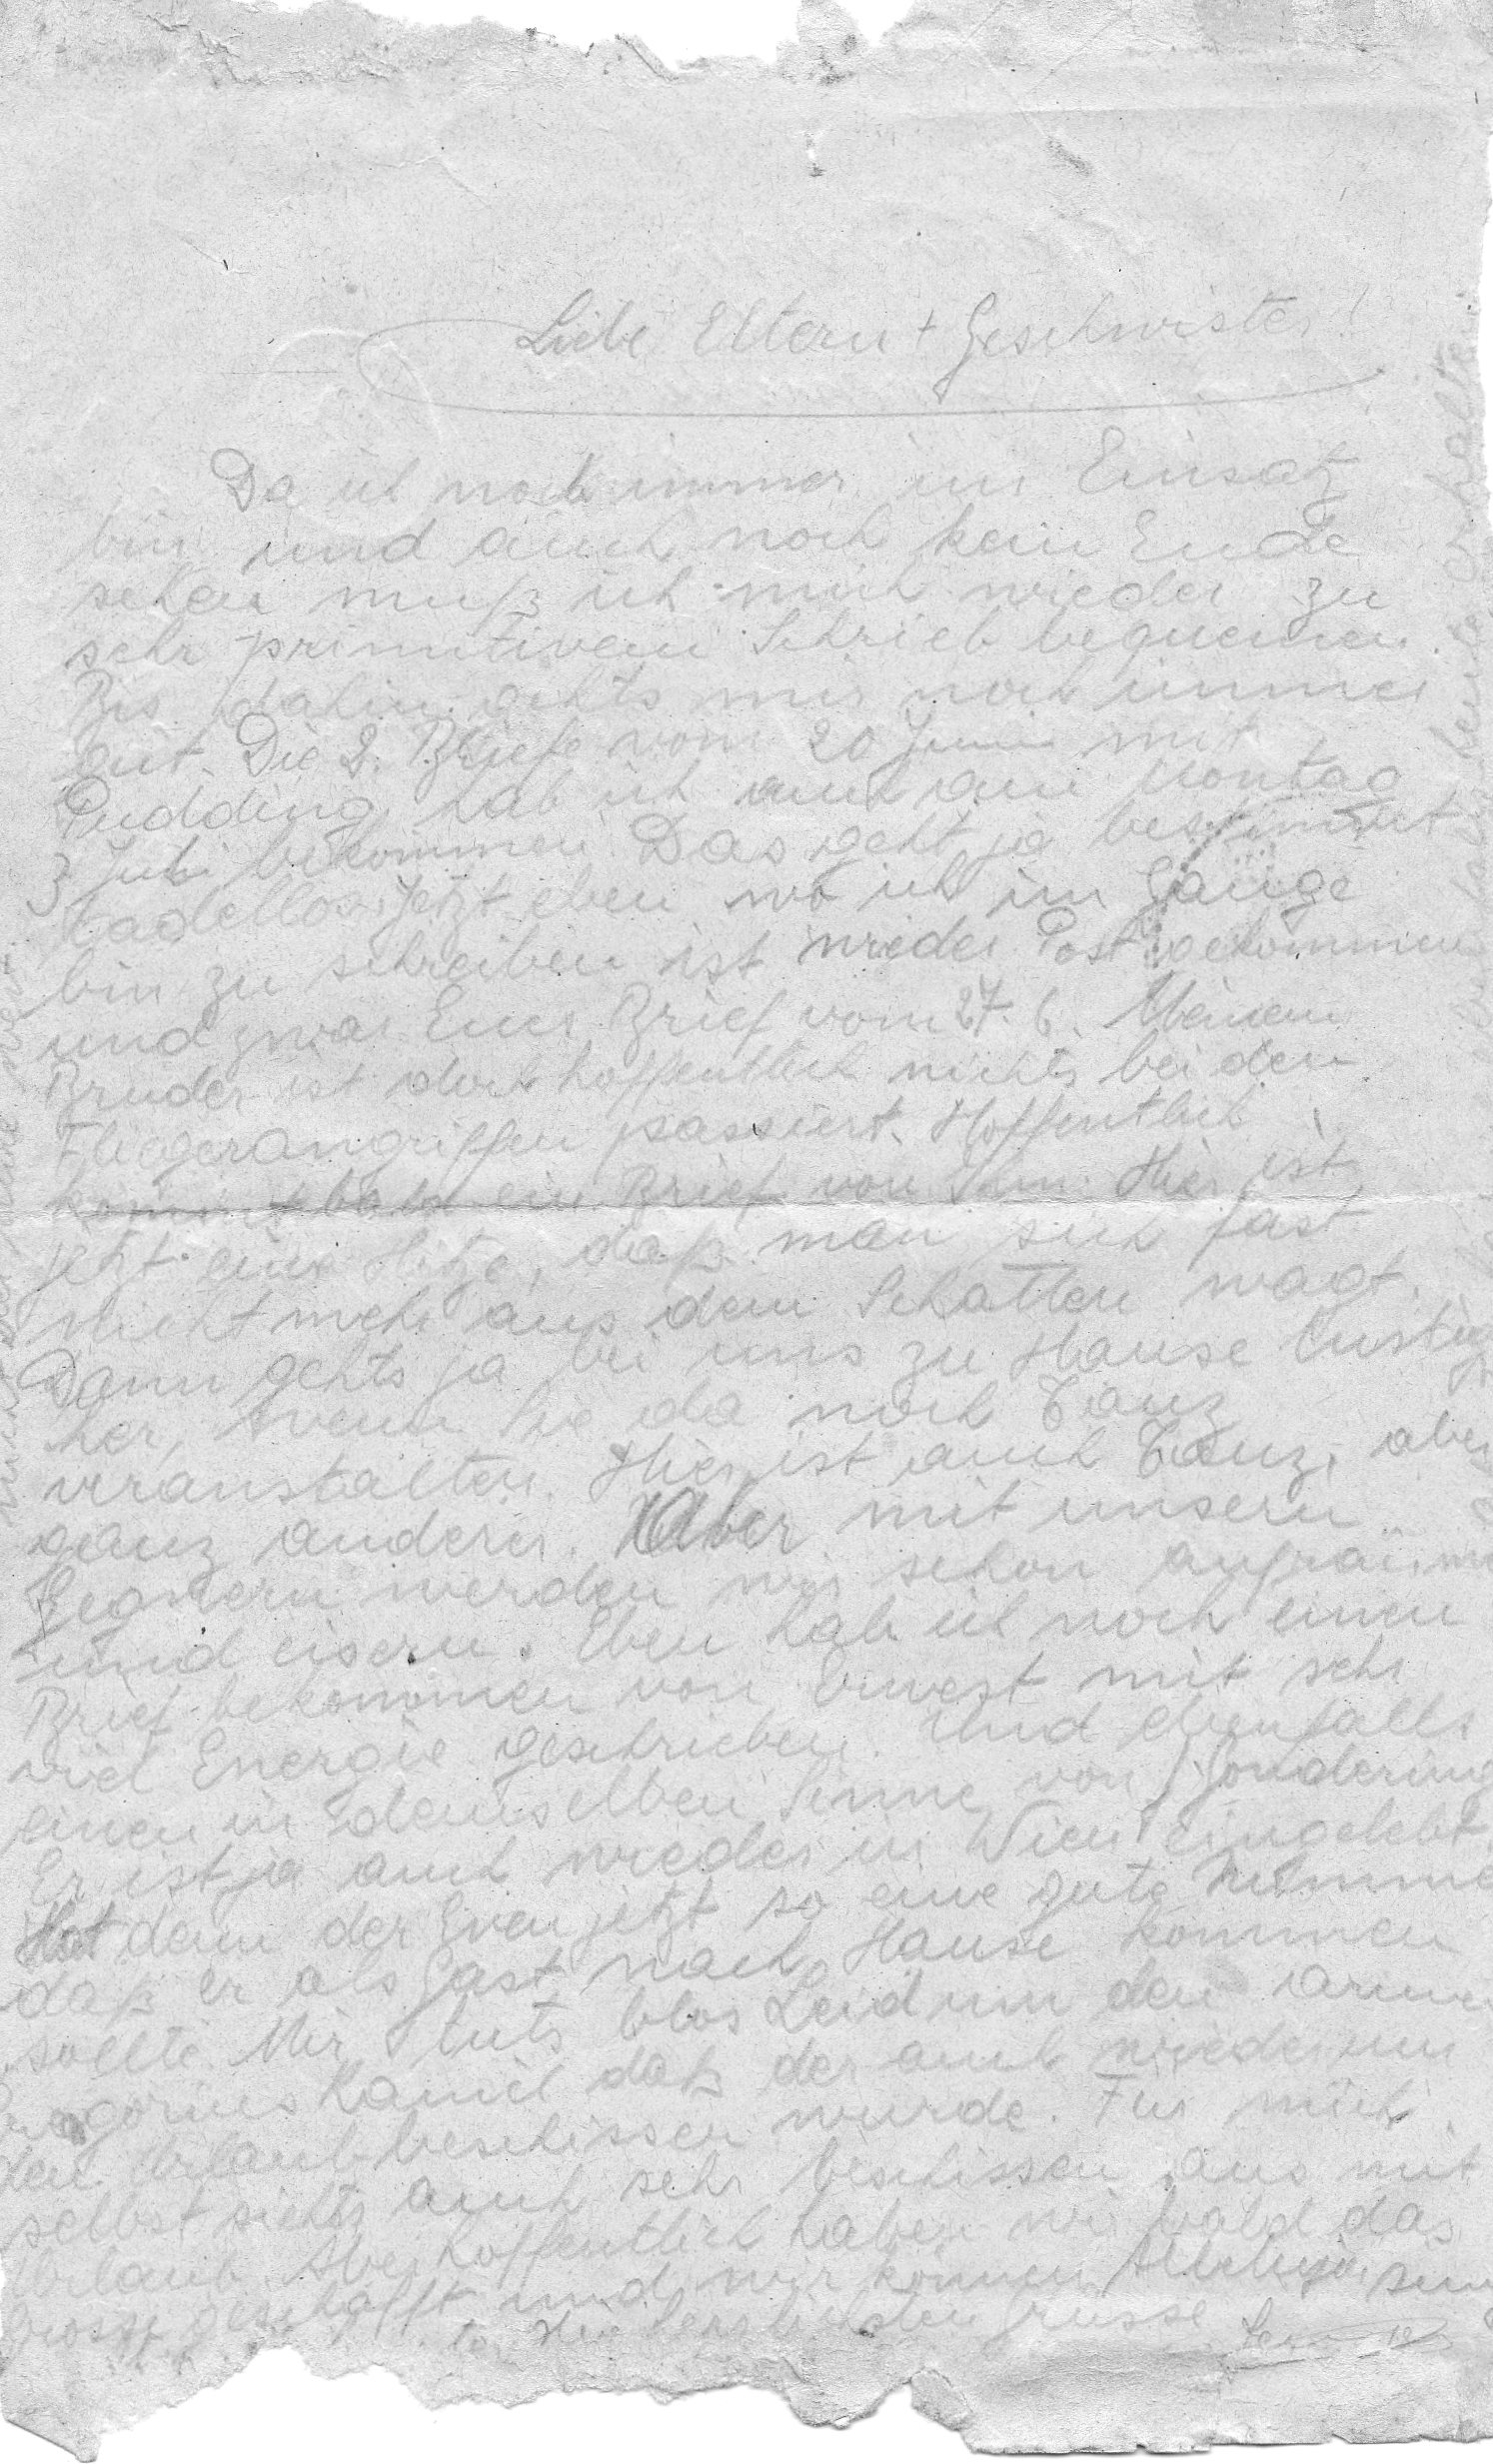 Liebe Eltern + Geschwister!
Da ich noch immer im Einsatz
bin und auch noch kein Ende
sehen muß ich mich wieder zu
sehr primitivem Schrieb bequemen.
Bis dahin gehts mir noch immer
gut. Die 2. Briefe vom 20 Juni mit
Pudding hab ich auch am Montag
3 Juli bekommen. Das geht ja bestimmt
tadellos. Jetzt eben wo ich im Gange
bin zu schreiben ist wieder Post gekommen
und zwar Euer Brief vom 27. 6. Meinem
Bruder ist doch hoffentlich nichts bei den
Fliegerangriffen passiert. Hoffentlich
kommt bald ein Brief von Ihm. Hier ist
jetzt eine Hitze, daß man sich fast
nicht mehr aus dem Schatten wagt.
Dann gehts ja bei uns zu Hause lustig
her, wenn Sie da noch Tanz
veranstalten. Hier ist auch Tanz, aber
ganz anderer. Aber mit unsern
Gegnern werden wir schon aufräumen
und eisern. Eben hab ich noch einen
Brief bekommen von Ernest mit sehr
viel Energie geschrieben. Und ebenfalls
einen in demselben Sinne von
Er ist ja auch wieder in Wien eingelebt.
Hat denn der jetzt so eine gute Nummer
daß er als Gast nach Hause kommen
sollte. Mir tuts blos Leid um den armen
Kamil daß der auch wiederum
den Urlaub beschissen wurde. Für mich
selbst siehts auch sehr beschissen aus mit
Urlaub. Aber hoffentlich haben wir bald das
grosse geschafft und wir können Alleluja sing
herzlichsten Grüsse